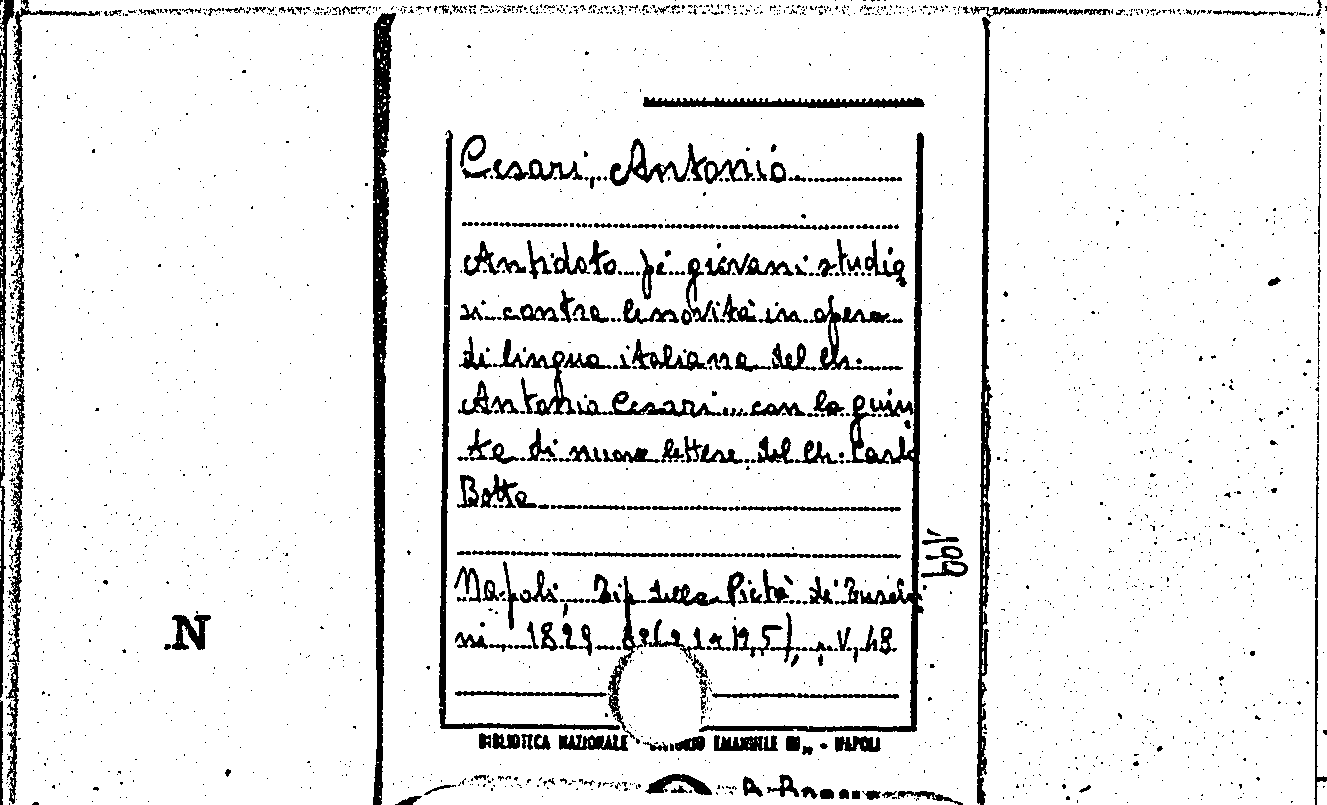 Cesari, Antonio
Antidoto pe' giovani studio
si contra le novità in opera
di lingua italiana del Ch.
Antonio Cesari... con la giun
ta di nuove lettere del Ch. Carlo
Botta
Napoli, Tip. della Pietà de'
ni, 1829 8° (21x12,5), V, 48
.N
BIBLIOTECA NAZIONALE EMANUELE III„ - NAPOLI